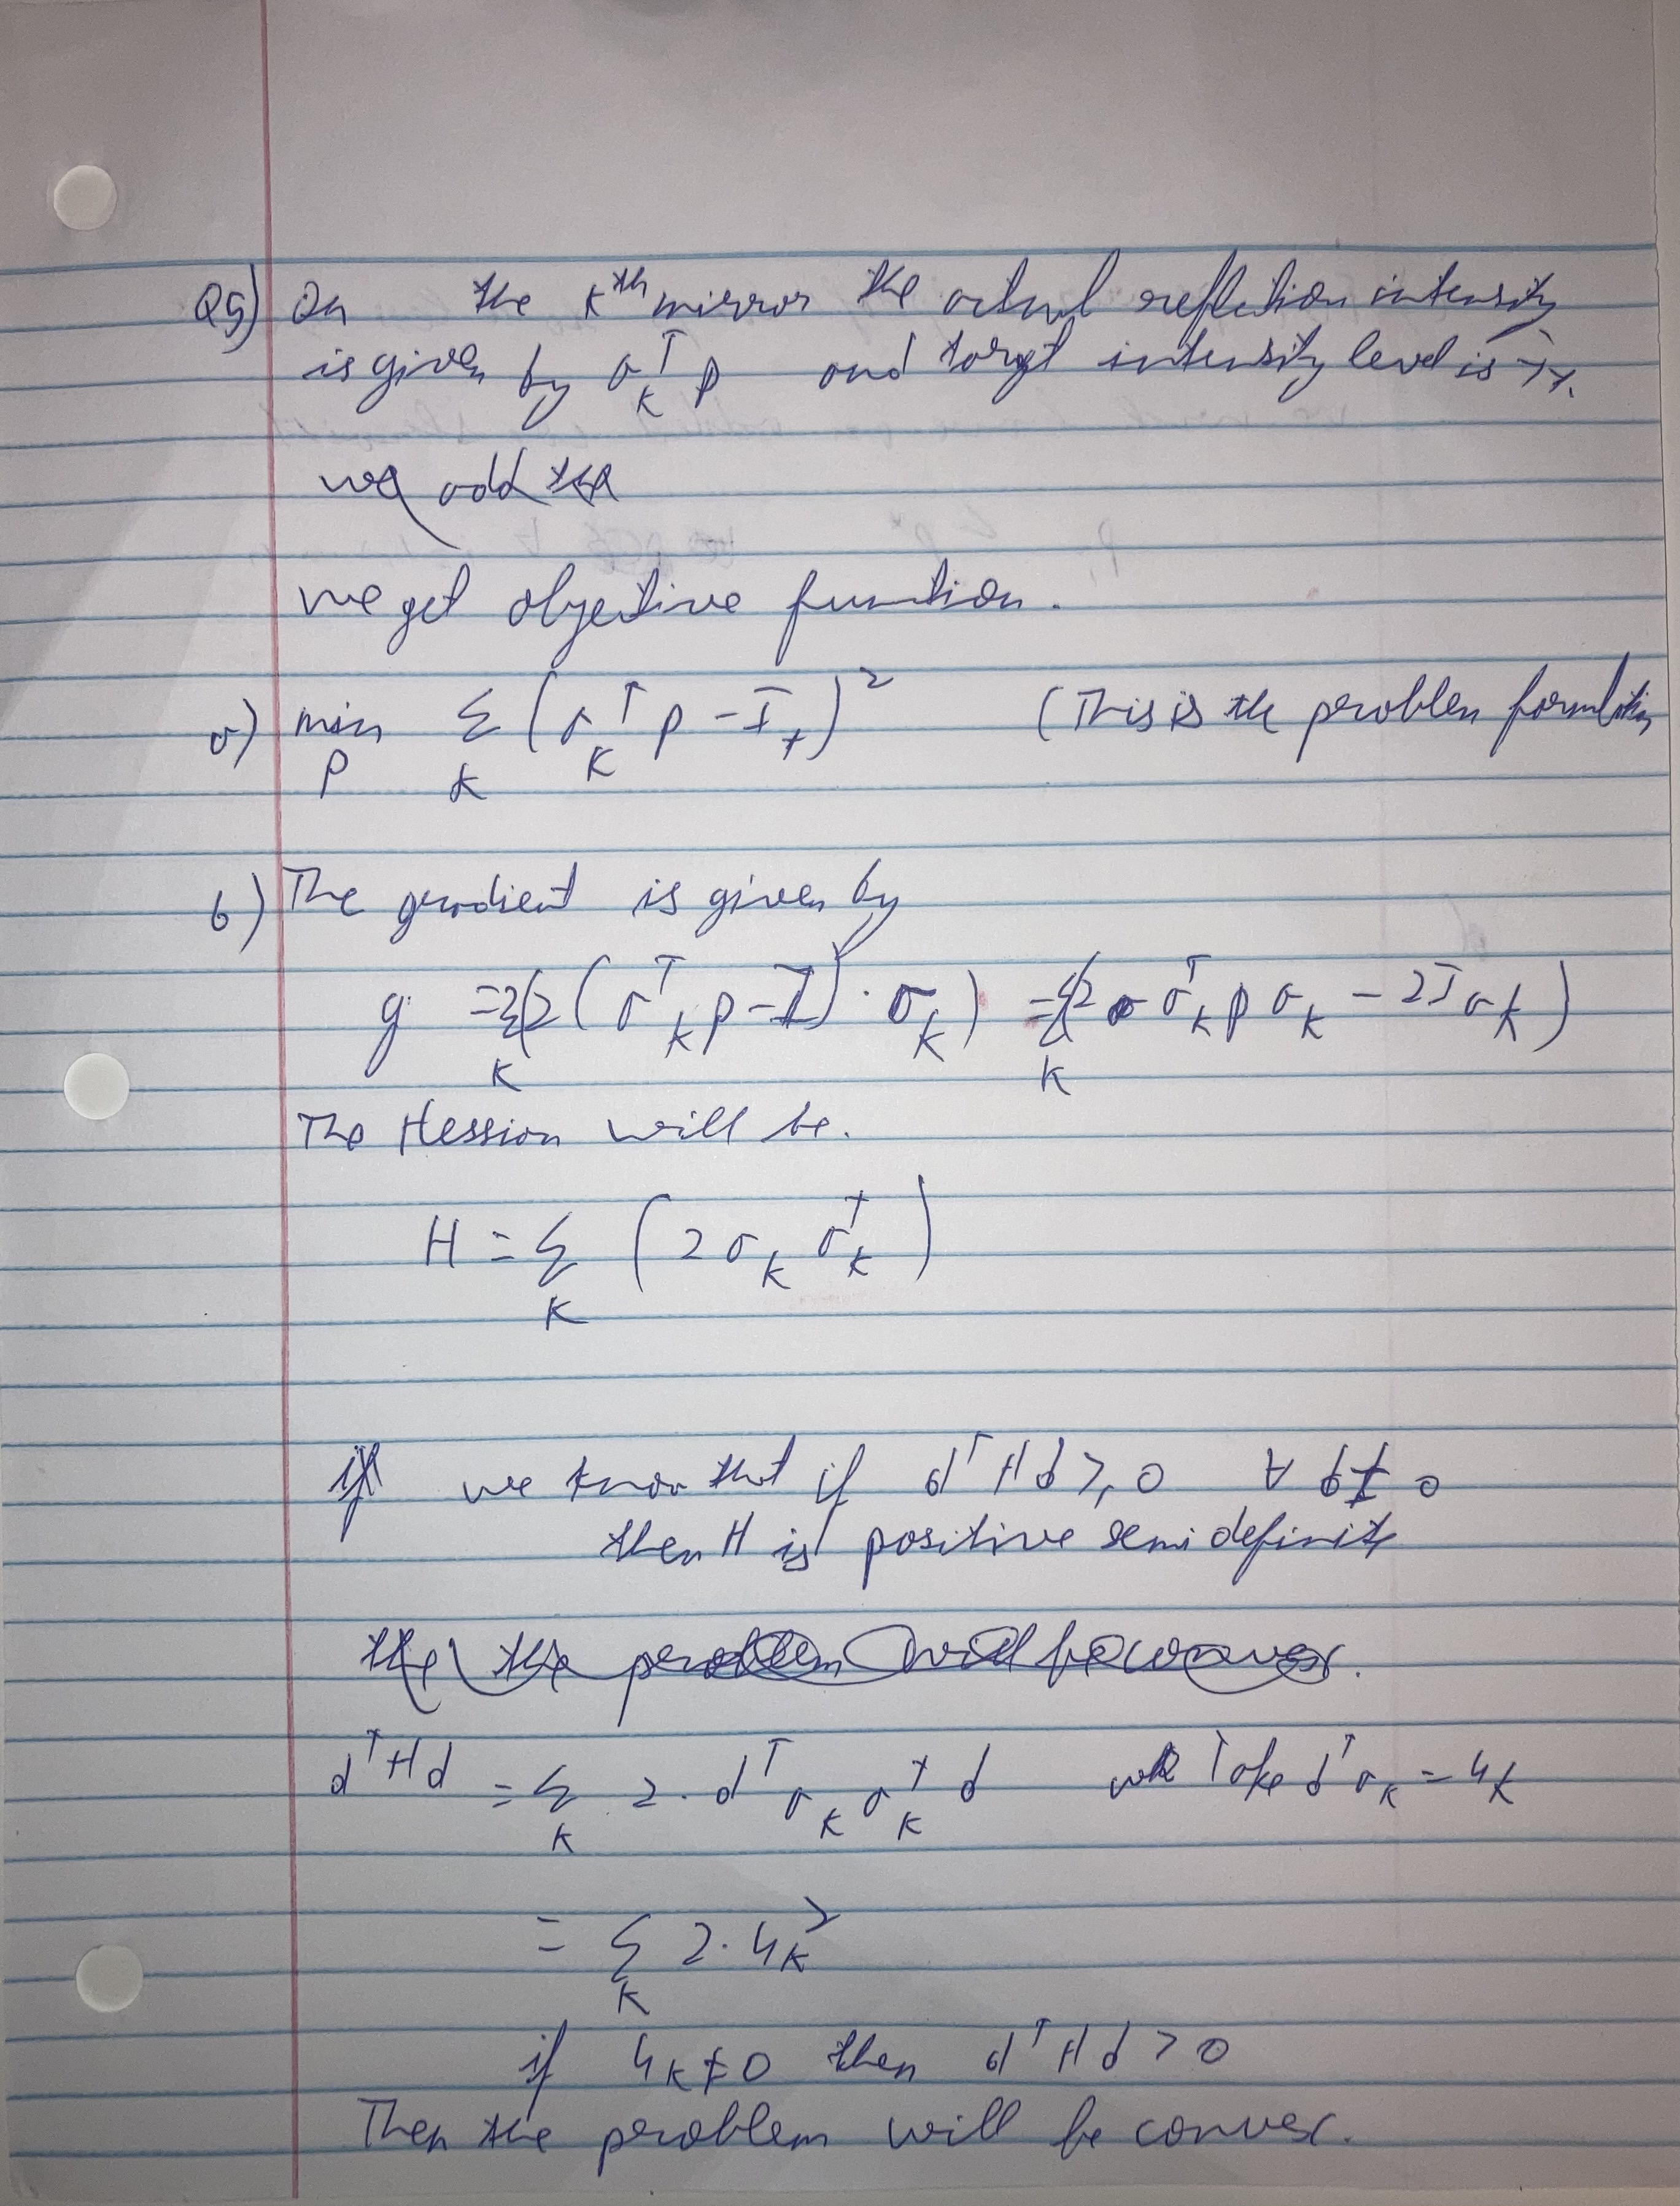 Q5) On the kth mirror the actual reflection intensity
is given by a_k^T p and target intensity level is I_t.
we get objective function.
a) min_p Σ_k (a_k^T p - I_t)^2 (This is the problem formulation
b) The gradient is given by
g = Σ_k (2(a_k^T p - I) · a_k) = Σ_k (2 a_k^T p a_k - 2I a_k)
The Hession will be.
H = Σ_k (2 a_k a_k^T)
we know that if d^T H d ≥ 0 ∀ d ≠ 0
then H is positive semi definite
d^T H d = Σ_k 2 · d^T a_k a_k^T d we Take d^T a_k = y_k
= Σ_k 2 · y_k^2
if y_k ≠ 0 then d^T H d > 0
Then the problem will be convex.